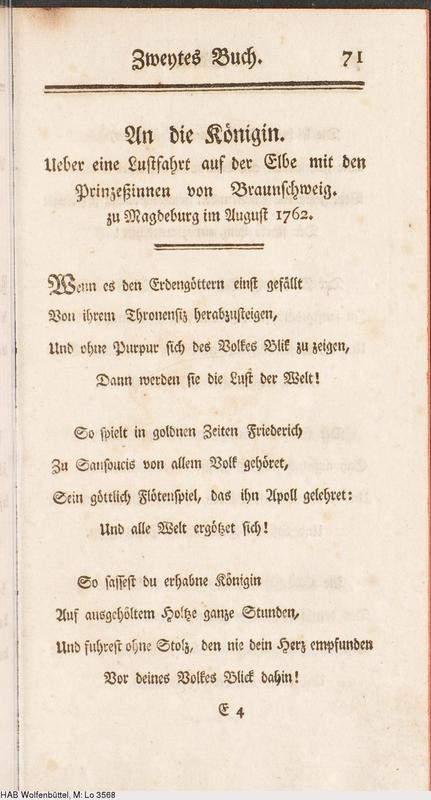 Zweytes Buch. 71
An die Königin.
Ueber eine Lustfahrt auf der Elbe mit den
Prinzeßinnen von Braunschweig.
zu Magdeburg im August 1762.
Wenn es den Erdengöttern einst gefällt
Von ihrem Thronensiz herabzusteigen,
Und ohne Purpur sich des Volkes Blik zu zeigen,
Dann werden sie die Lust der Welt!
So spielt in goldnen Zeiten Friederich
Zu Sansoucis von allem Volk gehöret,
Sein göttlich Flötenspiel, das ihn Apoll gelehret:
Und alle Welt ergötzet sich!
So sassest du erhabne Königin
Auf ausgehöltem Holtze ganze Stunden,
Und fuhrest ohne Stolz, den nie dein Herz empfunden
Vor deines Volkes Blick dahin!
E 4
HAB Wolfenbüttel, M: Lo 3568